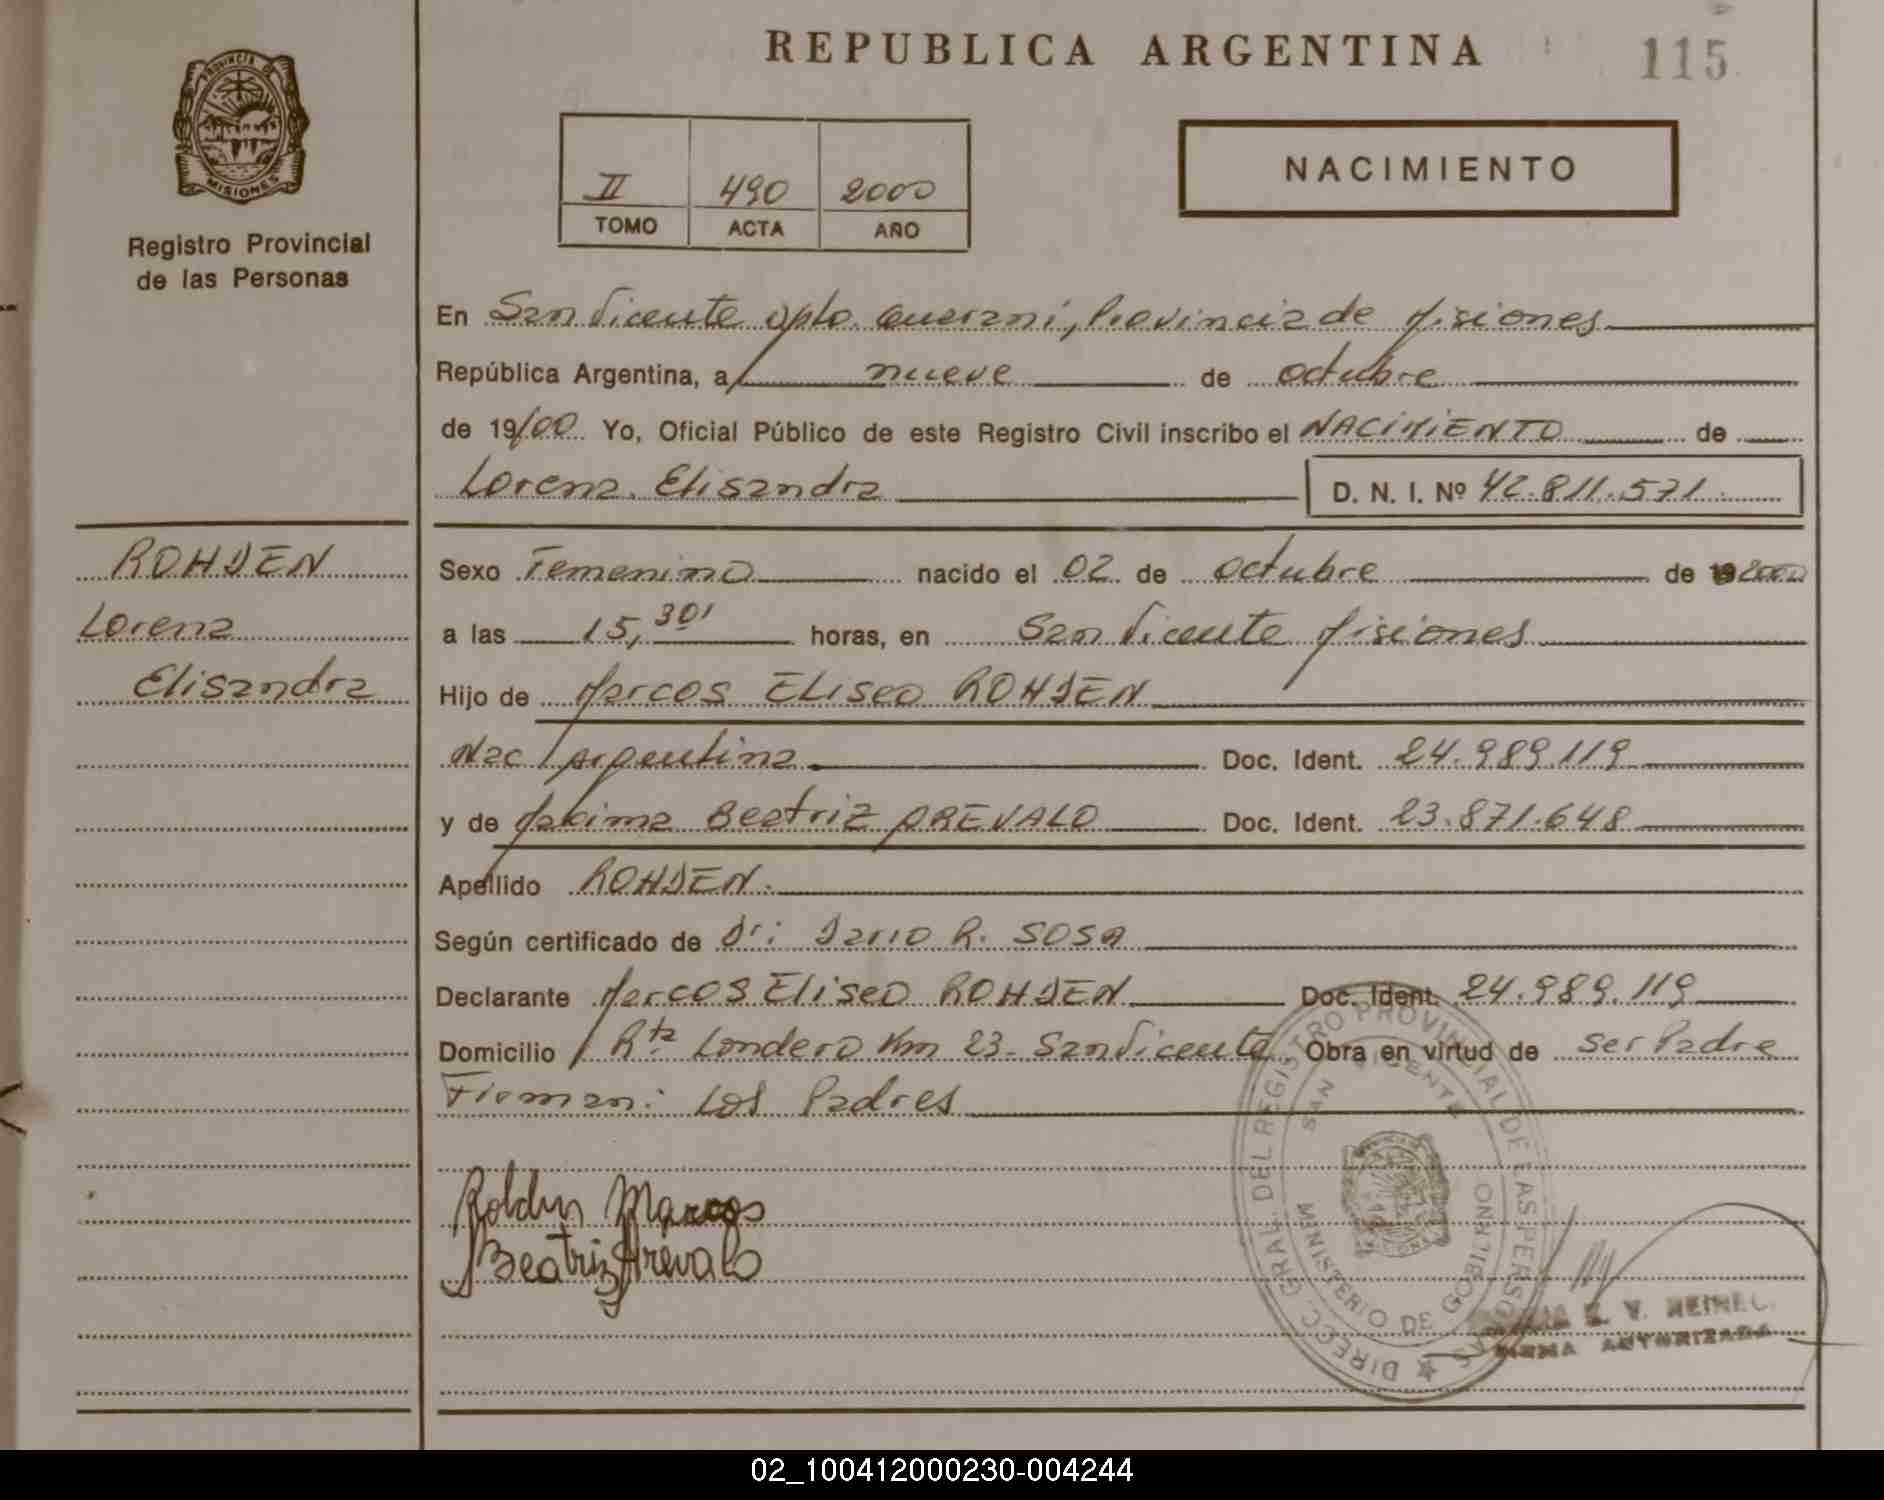 REPUBLICA ARGENTINA
115
PROVINCIA DE
MISIONES
Registro Provincial
de las Personas
II 490 2000
TOMO ACTA AÑO
NACIMIENTO
En San Vicente Dpto. Guarani, Provincia de Misiones
República Argentina, a nueve de octubre
de 19/00 Yo, Oficial Público de este Registro Civil inscribo el NACIMIENTO de
Lorena Elisandra D. N. I. Nº 42.811.571
ROHDEN
Lorena
Elisandra
Sexo Femenino nacido el 02 de octubre de 2000
a las 15,30' horas, en San Vicente Misiones
Hijo de Marcos Eliseo ROHDEN
Nac Argentina Doc. Ident. 24.989.119
y de Maxima Beatriz AREVALO Doc. Ident. 23.871.648
Apellido ROHDEN.
Según certificado de Dr: Dario R. SOSA
Declarante Marcos Eliseo ROHDEN Doc. Ident. 24.989.119
Domicilio Rta Londero Km 23- San Vicente Obra en virtud de ser Padre
Firman: Los Padres
DIRECC. GRAL. DEL REGISTRO PROVINCIAL DE LAS PERSONAS
SAN VICENTE
MINISTERIO DE GOBIERNO
Marcos
Beatriz Arevalo
E. V.
FIRMA AUTORIZADA
02_100412000230-004244